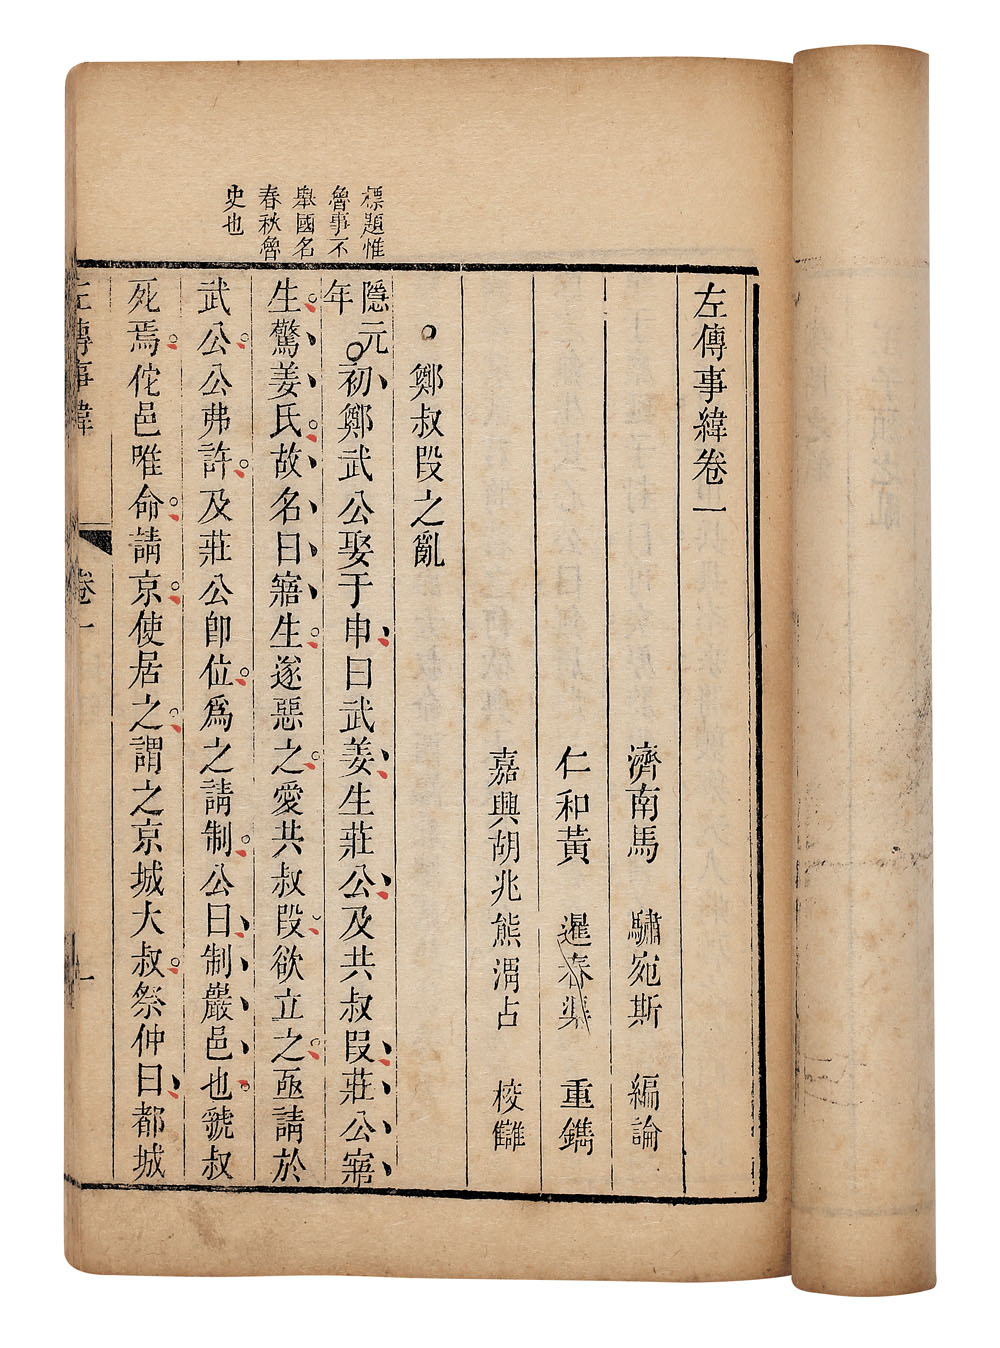 左傳事緯卷一
濟南馬 驌宛斯 編論
仁和黃 暹春渠 重鐫
嘉興胡兆熊渭占 校讎
鄭叔段之亂
標題惟
魯事不
舉國名
春秋魯
史也
隱元年初鄭武公娶于申曰武姜生莊公及共叔段莊公寤
生驚姜氏故名曰寤生遂惡之愛共叔段欲立之亟請於
武公公弗許及莊公卽位爲之請制公曰制嚴邑也虢叔
死焉佗邑唯命請京使居之謂之京城大叔祭仲曰都城
左傳事緯
卷一
一